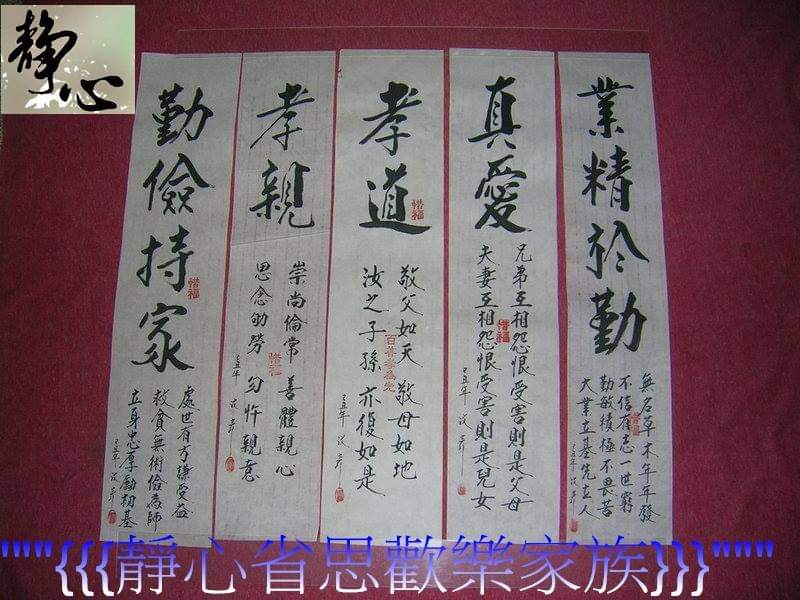 靜心
業精於勤
無名草木年年發
不信有志一世窮
惜福
勤敏積極不畏苦
大業立基先立人
己丑年
真愛
兄弟互相怨恨受害則是父母
惜福
夫妻互相怨恨受害則是兒女
己丑年
孝道
惜福
敬父如天 敬母如地
百善孝為先
汝之子孫 亦復如是
己丑年
孝親
崇尚倫常 善體親心
惜福
思念劬勞 勿忤親意
己丑年
勤儉持家
惜福
處世有方謙受益
救貧無術儉為師
立身忠厚勵初基
己丑年
"""{{{靜心省思歡樂家族}}}"""